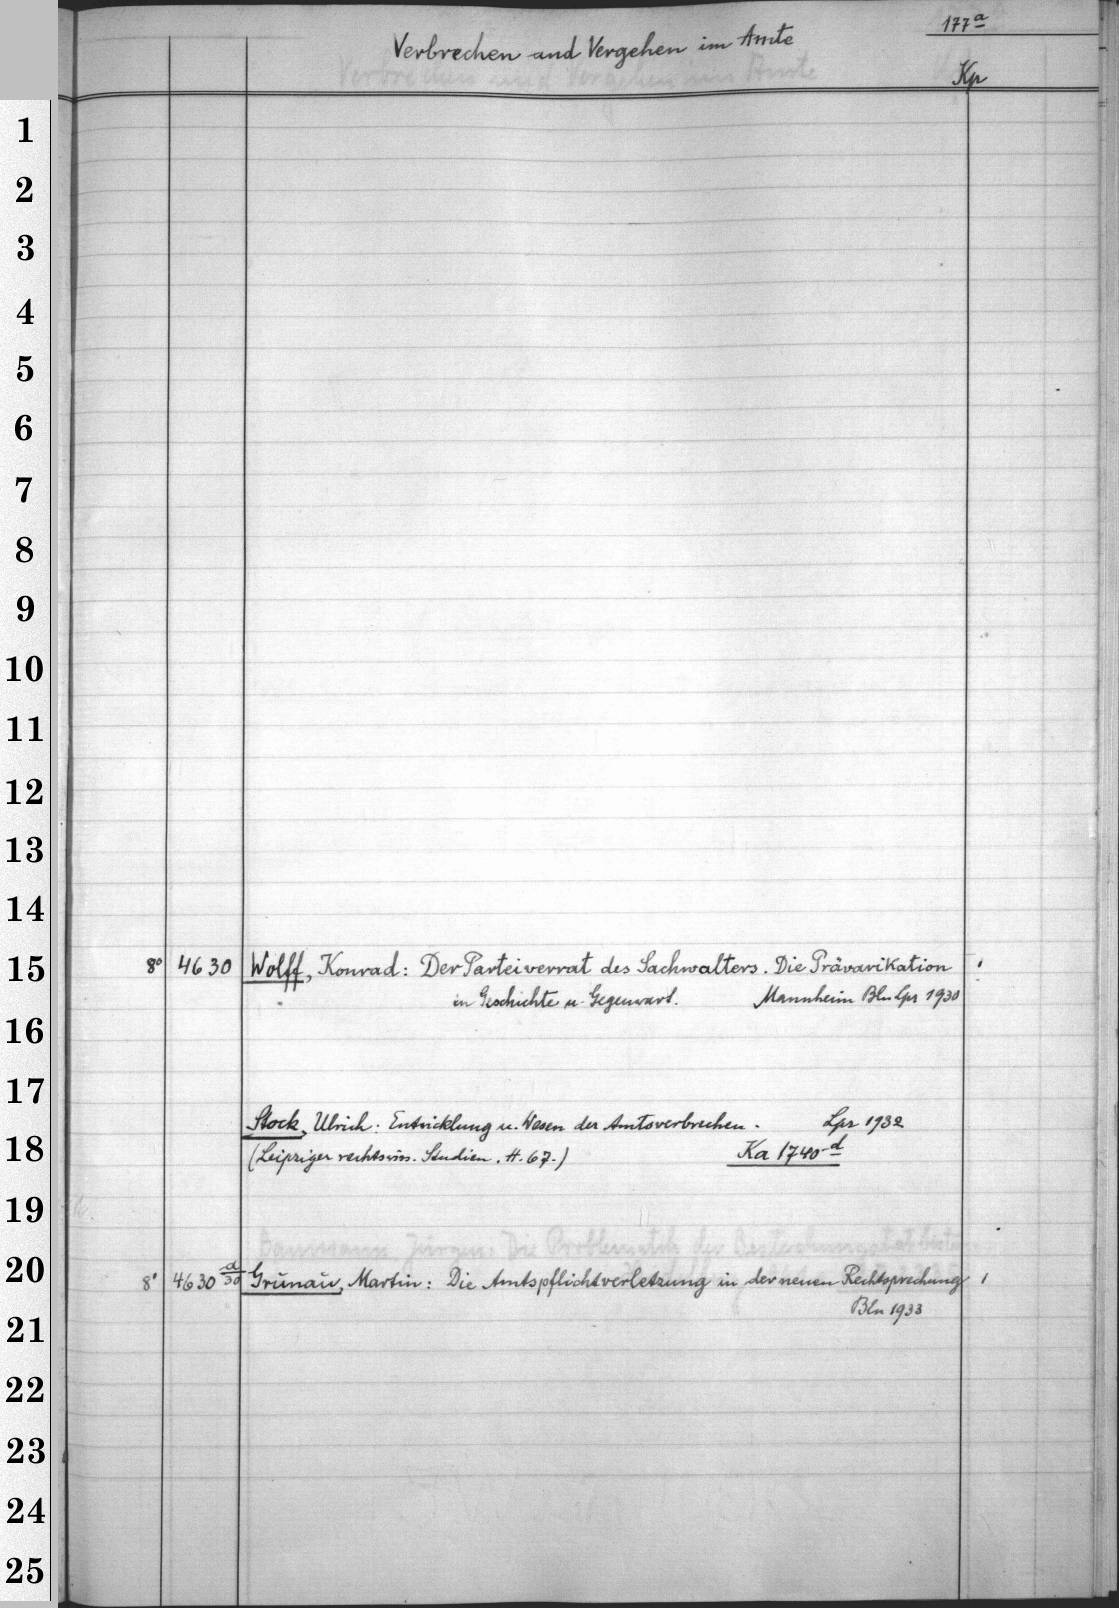 177a
Verbrechen und Vergehen im Amte
Kp
1
2
3
4
5
6
7
8
9
10
11
12
13
14
15
8° 4630 Wolff, Konrad: Der Parteiverrat des Sachwalters. Die Prävarikation
in Geschichte u. Gegenwart. Mannheim Bln Lpz 1930
16
17
Stock, Ulrich: Entwicklung u. Wesen der Amtsverbrechen. Lpz 1932
18
(Leipziger rechtswiss. Studien. H. 67.) Ka 1740 d
19
20
8° 4630 a/30 Grünau, Martin: Die Amtspflichtverletzung in der neuen Rechtsprechung
Bln 1933
21
22
23
24
25